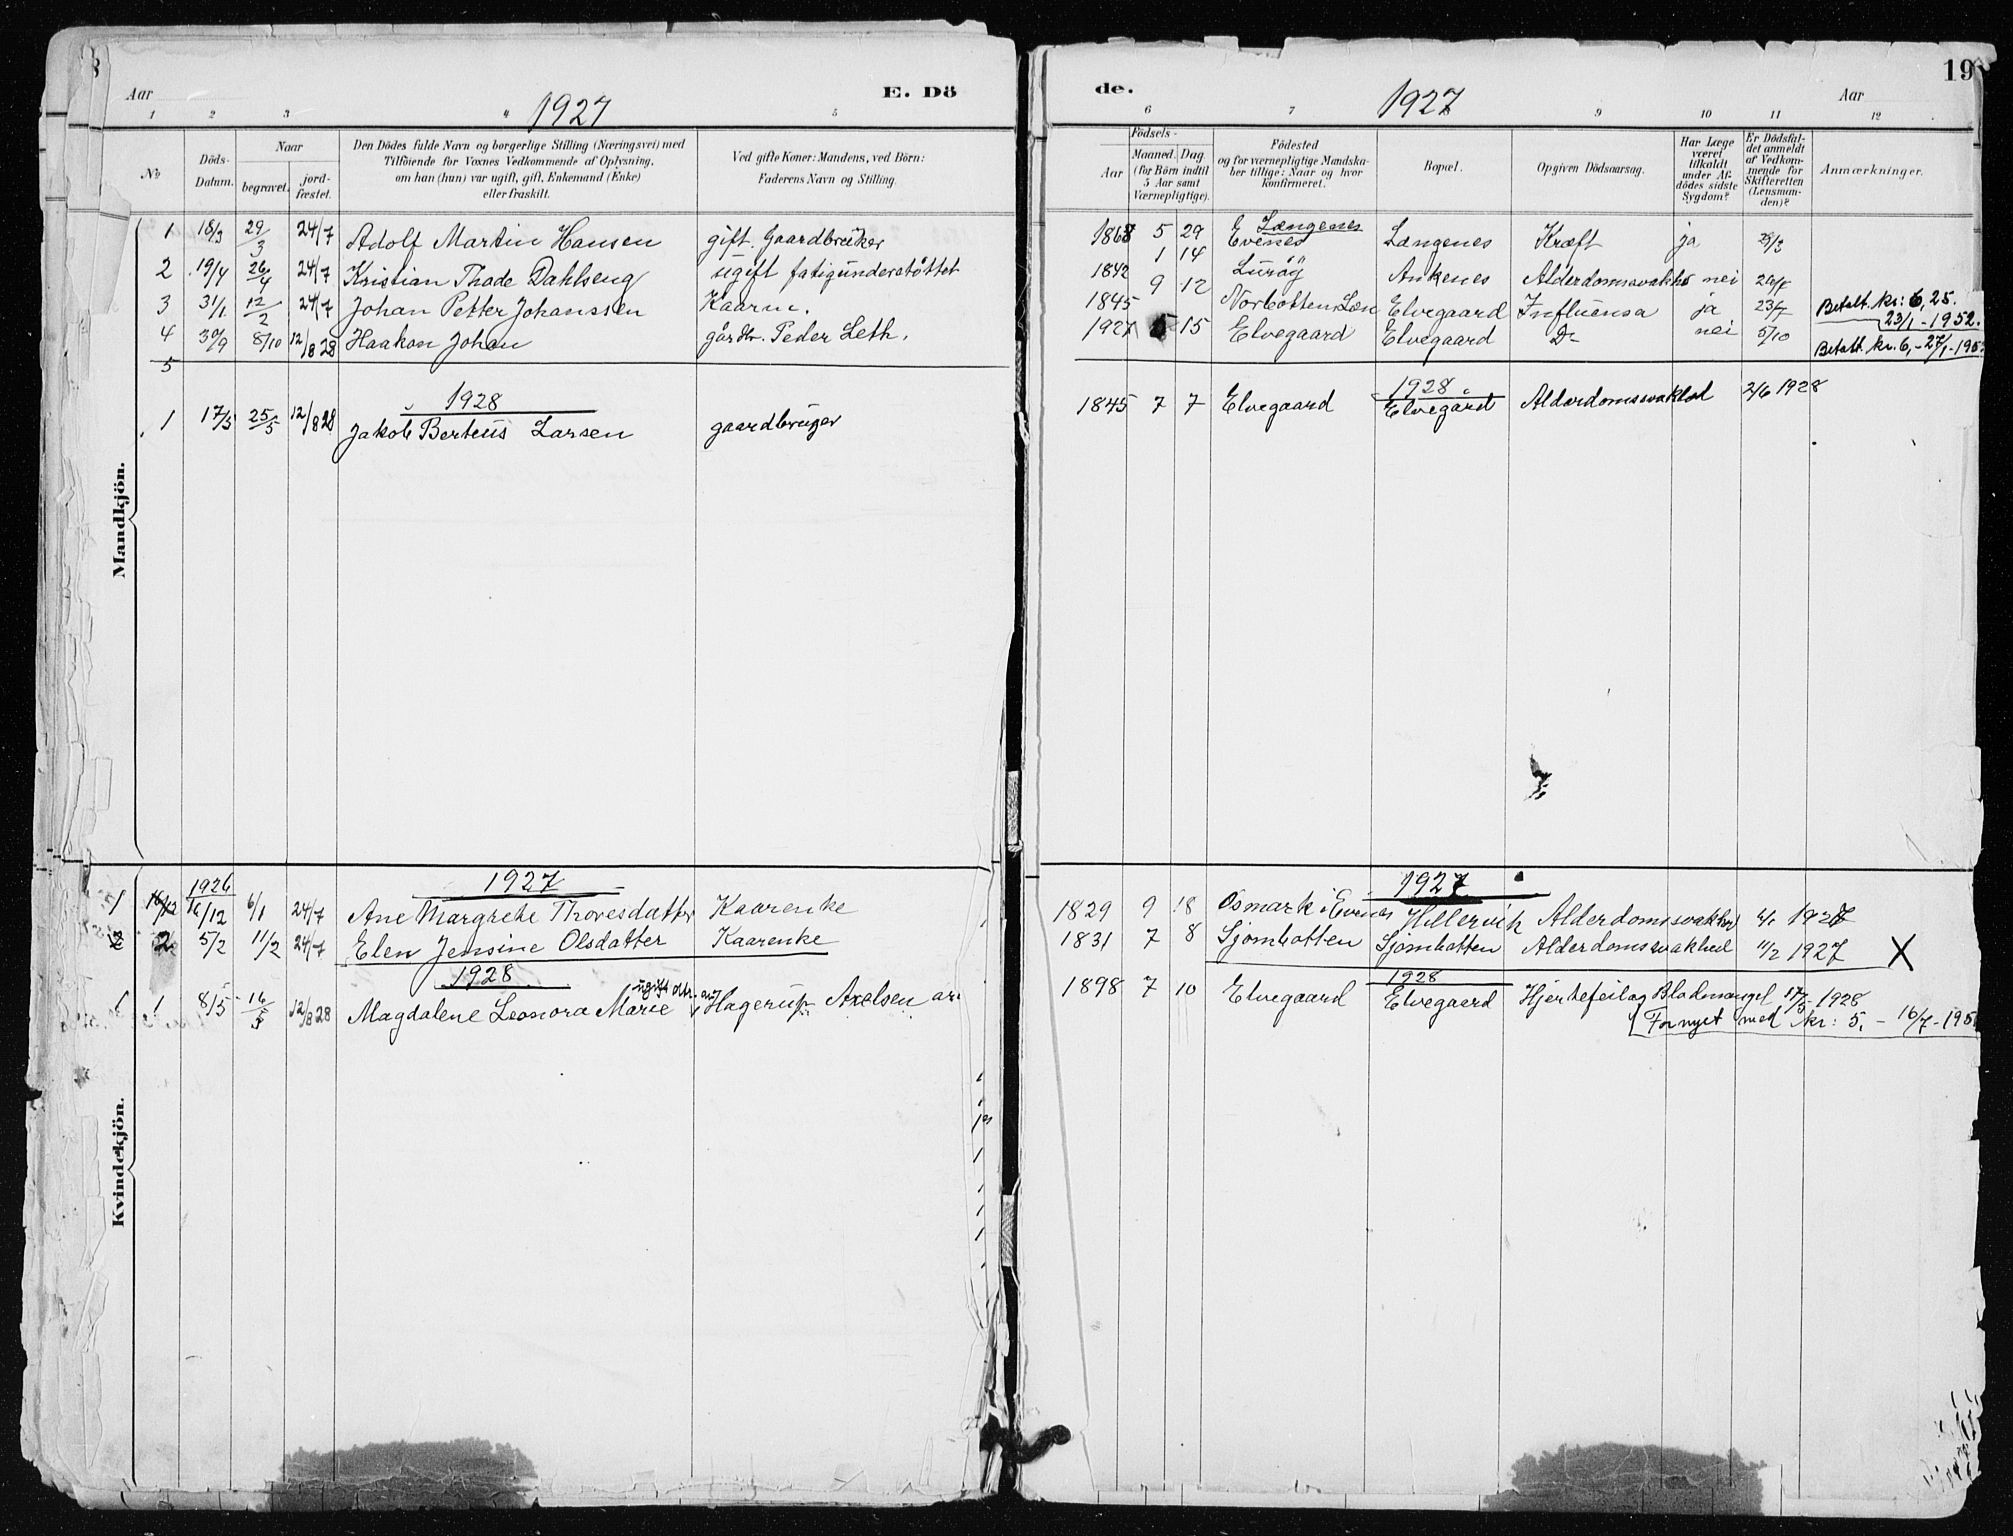 Aar E. Dö
1927
1 2 3 4 5
No
Döds-Datum.
Naar
begravet.
jord-fæstet.
Den Dödes fulde Navn og borgerlige Stilling (Næringsvei) med
Tilföiende for Voxnes Vedkommende af Oplysning,
om han (hun) var ugift, gift, Enkemand (Enke)
eller fraskilt.
Ved gifte Koner: Mandens, ved Börn:
Faderens Navn og Stilling.
Mandkjön.
1 18/3 29/3 24/7 Adolf Martin Hansen gift. Gaardbruker
2 19/4 26/4 24/7 Kristian Thode Dahlseng ugift fatigunderstöttet
3 31/1 12/2 24/7 Johan Petter Johanssen Kaarm.
4 30/9 8/10 12/8 28 Haakon Johan gårdbr. Peder Leth.
5
1928
1 17/5 25/5 12/8 28 Jakob Berteus Larsen gaardbruger
Kvindekjön.
1926 1927
1 16/12 16/12 6/1 24/7 Ane Margrete Thoresdatter Kaarenke
2 2 5/2 11/2 24/7 Elen Jensine Olsdatter Kaarenke
1928
ugift dtr. av
1 1 8/5 16/5 12/8 28 Magdalene Leonora Marie Hagerup Axelsen
de. 19
1927 Aar
6 7 8 9 10 11 12
Födsels-
Aar
Maaned. Dag
(for Börn indtil
5 Aar samt
Værnepligtige).
Födested
og for værnepligtige Mandska-
ber tillige: Naar og hvor
konfirmeret.
Bopæl.
Opgiven Dödsaarsag.
Har Læge
været
tilkaldt
under Af-
dödes sidste
Sygdom?
Er Dödsfal-
det anmeldt
af Vedkom-
mende for
Skifteretten
(Lensman-
den)?
Anmærkninger.
1868 5 29 Evenes Længenes Længenes Kræft ja 29/3
1842 1 14 Luröy Ankenes Alderdomssvakhe nei 26/4
1845 9 12 Norbotten Len Elvegaard Influensa ja 23/7 Betalt. kr: 6,25.
23/1 - 1952.
1927 5 15 Elvegaard Elvegaard Do nei 5/10
Betalt. kr. 6,- 27/1-195
1928
1845 7 7 Elvegaard Elvegård Alderdomssvakhed 2/6 1928
1927
1829 9 18 Osmark i Evenes Hillervik Alderdomssvakhed 6/1 1927
1831 7 8 Sjombotten Sjombotten Alderdomssvakhed 11/2 1927 X
1928
1898 7 10 Elvegaard Elvegaard Hjertefeil og Blodmangel 17/5-1928
Fornyet med kr: 5,- 16/7-195